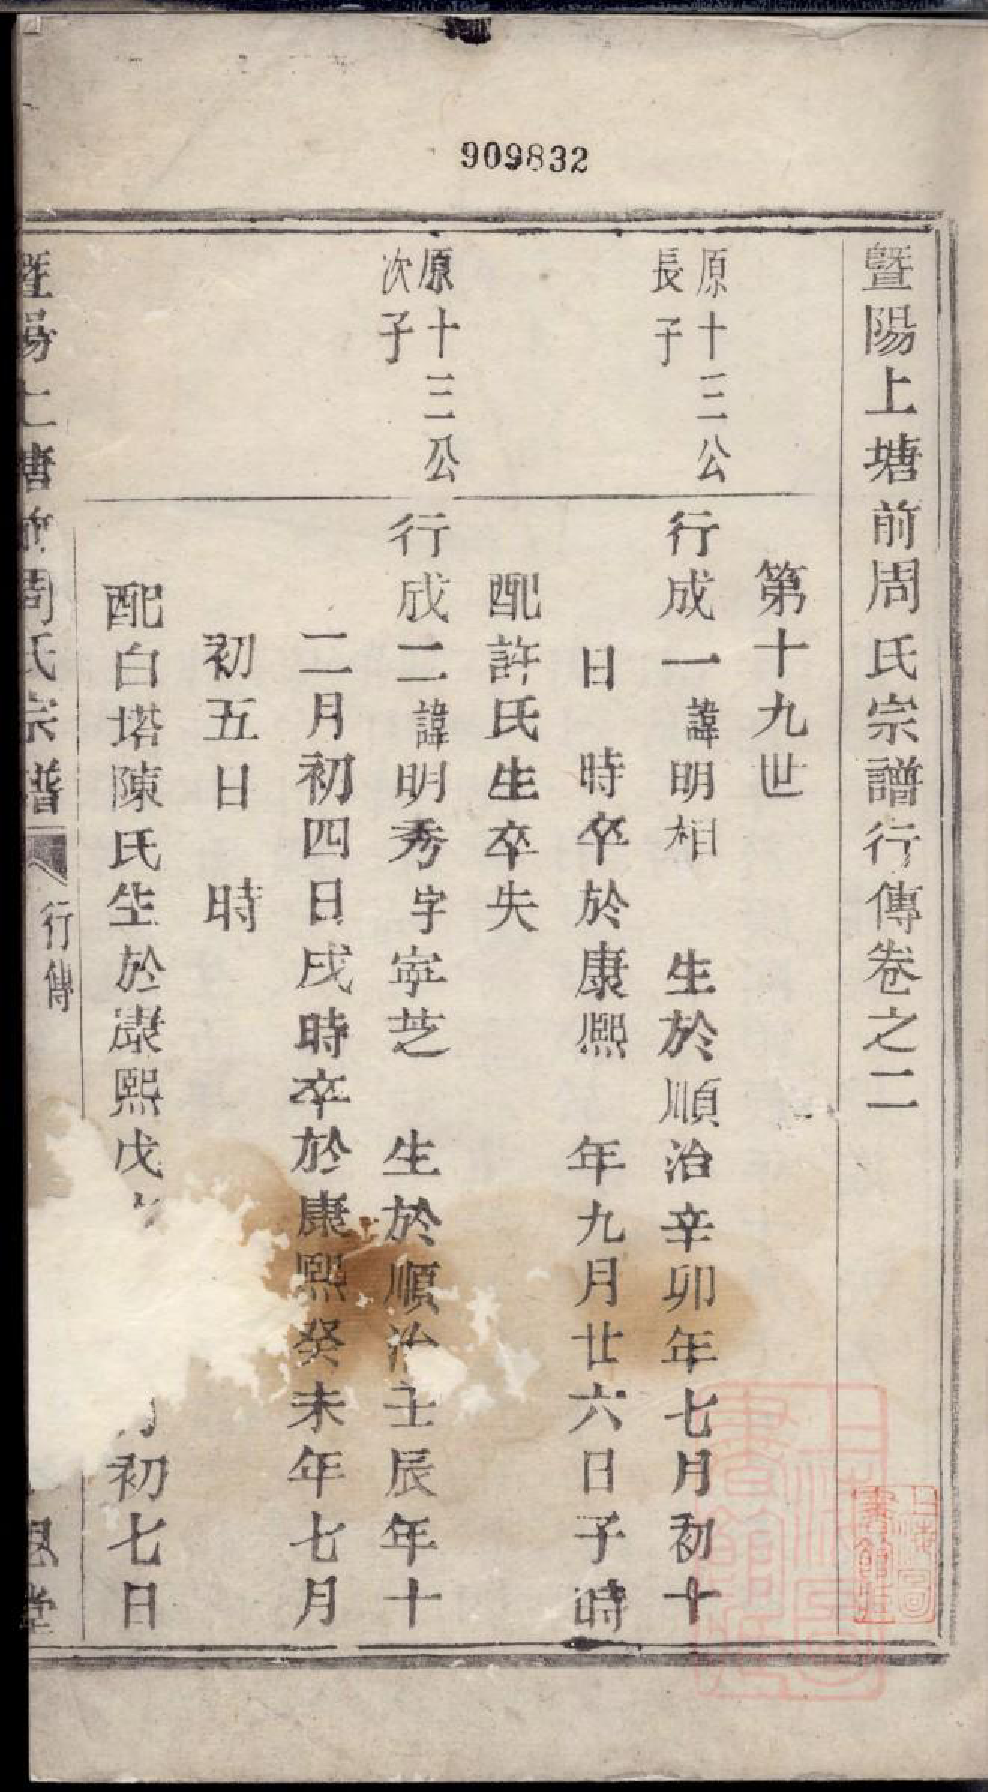 909832
暨陽上塘前周氏宗譜行傳卷之二
第十九世
原十三公
長子
行成一諱明相 生於順治辛卯年七月初十
日 時卒於康熙 年九月廿六日子時
配許氏生卒失
原十三公
次子
行成二諱明秀字寧芝 生於順治壬辰年十
二月初四日戌時卒於康熙癸未年七月
初五日 時
配白塔陳氏生於康熙戊 月初七日
暨陽上塘前周氏宗譜
行傳
堂
上海圖書館藏
上海圖書館藏